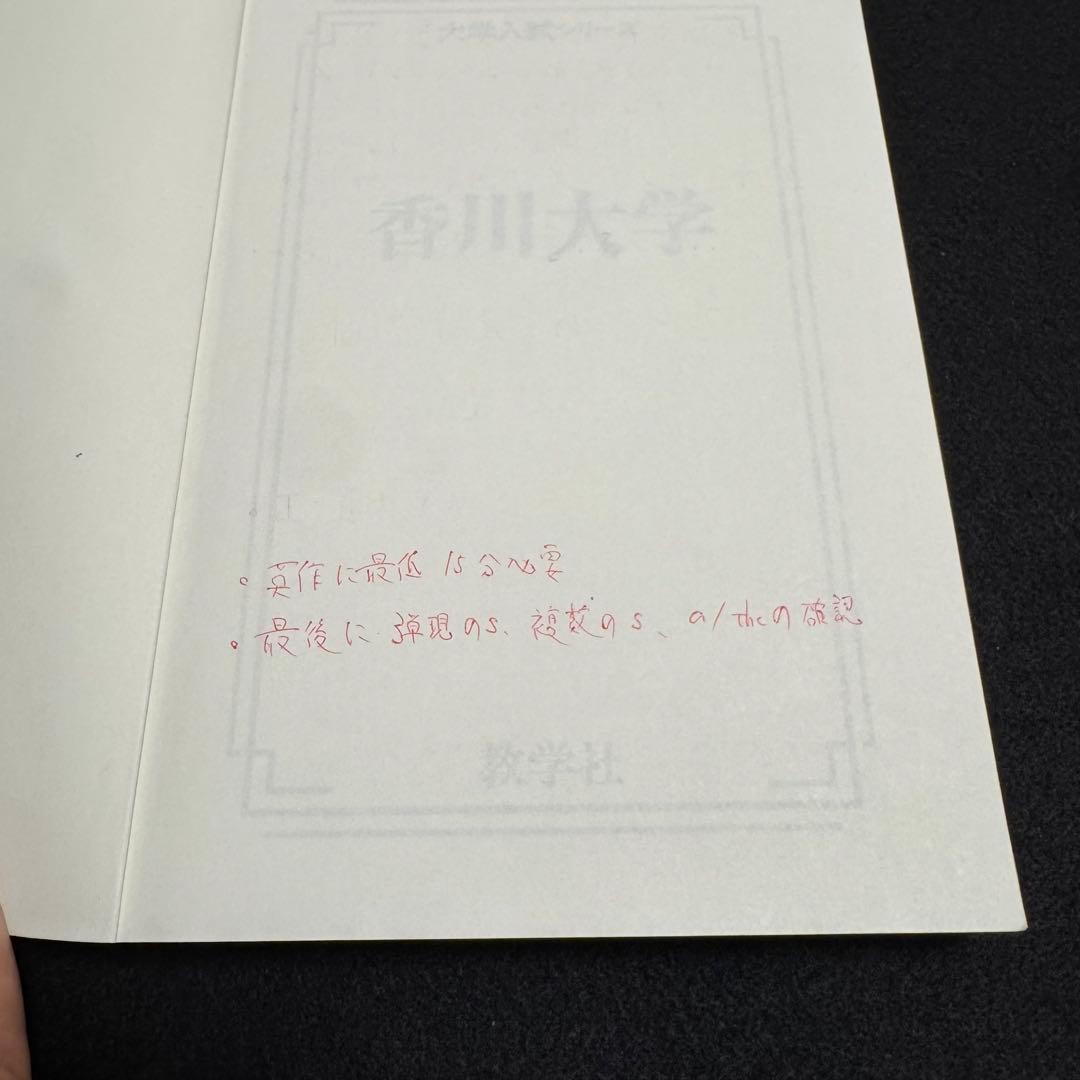 大学入試シリーズ
香川大学
・英作に最低 15分必要
・最後に 単現のs、複数のs、a/theの確認
教学社